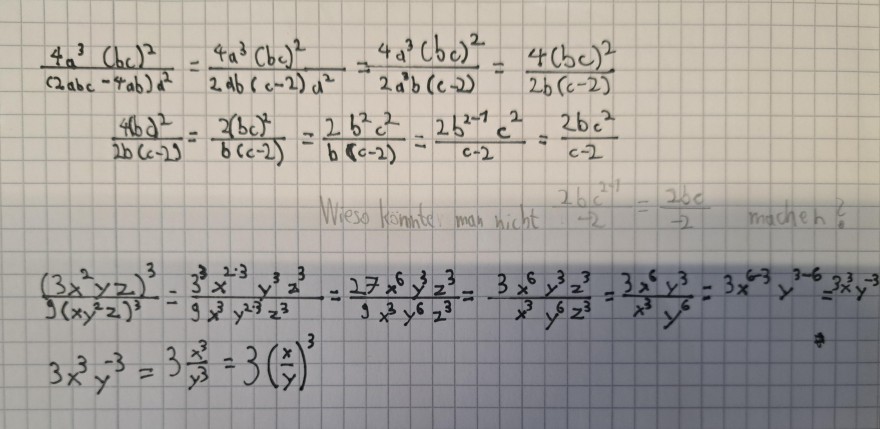 4a³ (bc)² / (2abc - 4ab) a² = 4a³ (bc)² / 2ab (c-2) a² = 4a³ (bc)² / 2a³b (c-2) = 4(bc)² / 2b(c-2)
4(bc)² / 2b(c-2) = 2(bc)² / b(c-2) = 2 b² c² / b (c-2) = 2b²⁻¹ c² / c-2 = 2bc² / c-2
Wieso könnte man nicht 2bc²⁻¹ / -2 = 2bc / -2 machen?
(3x²yz)³ / 9(xy²z)³ = 3³ x²·³ y³ z³ / 9 x³ y²·³ z³ = 27 x⁶ y³ z³ / 9 x³ y⁶ z³ = 3 x⁶ y³ z³ / x³ y⁶ z³ = 3x⁶ y³ / x³ y⁶ = 3x⁶⁻³ y³⁻⁶ = 3x³y⁻³
3x³y⁻³ = 3 x³/y³ = 3 (x/y)³